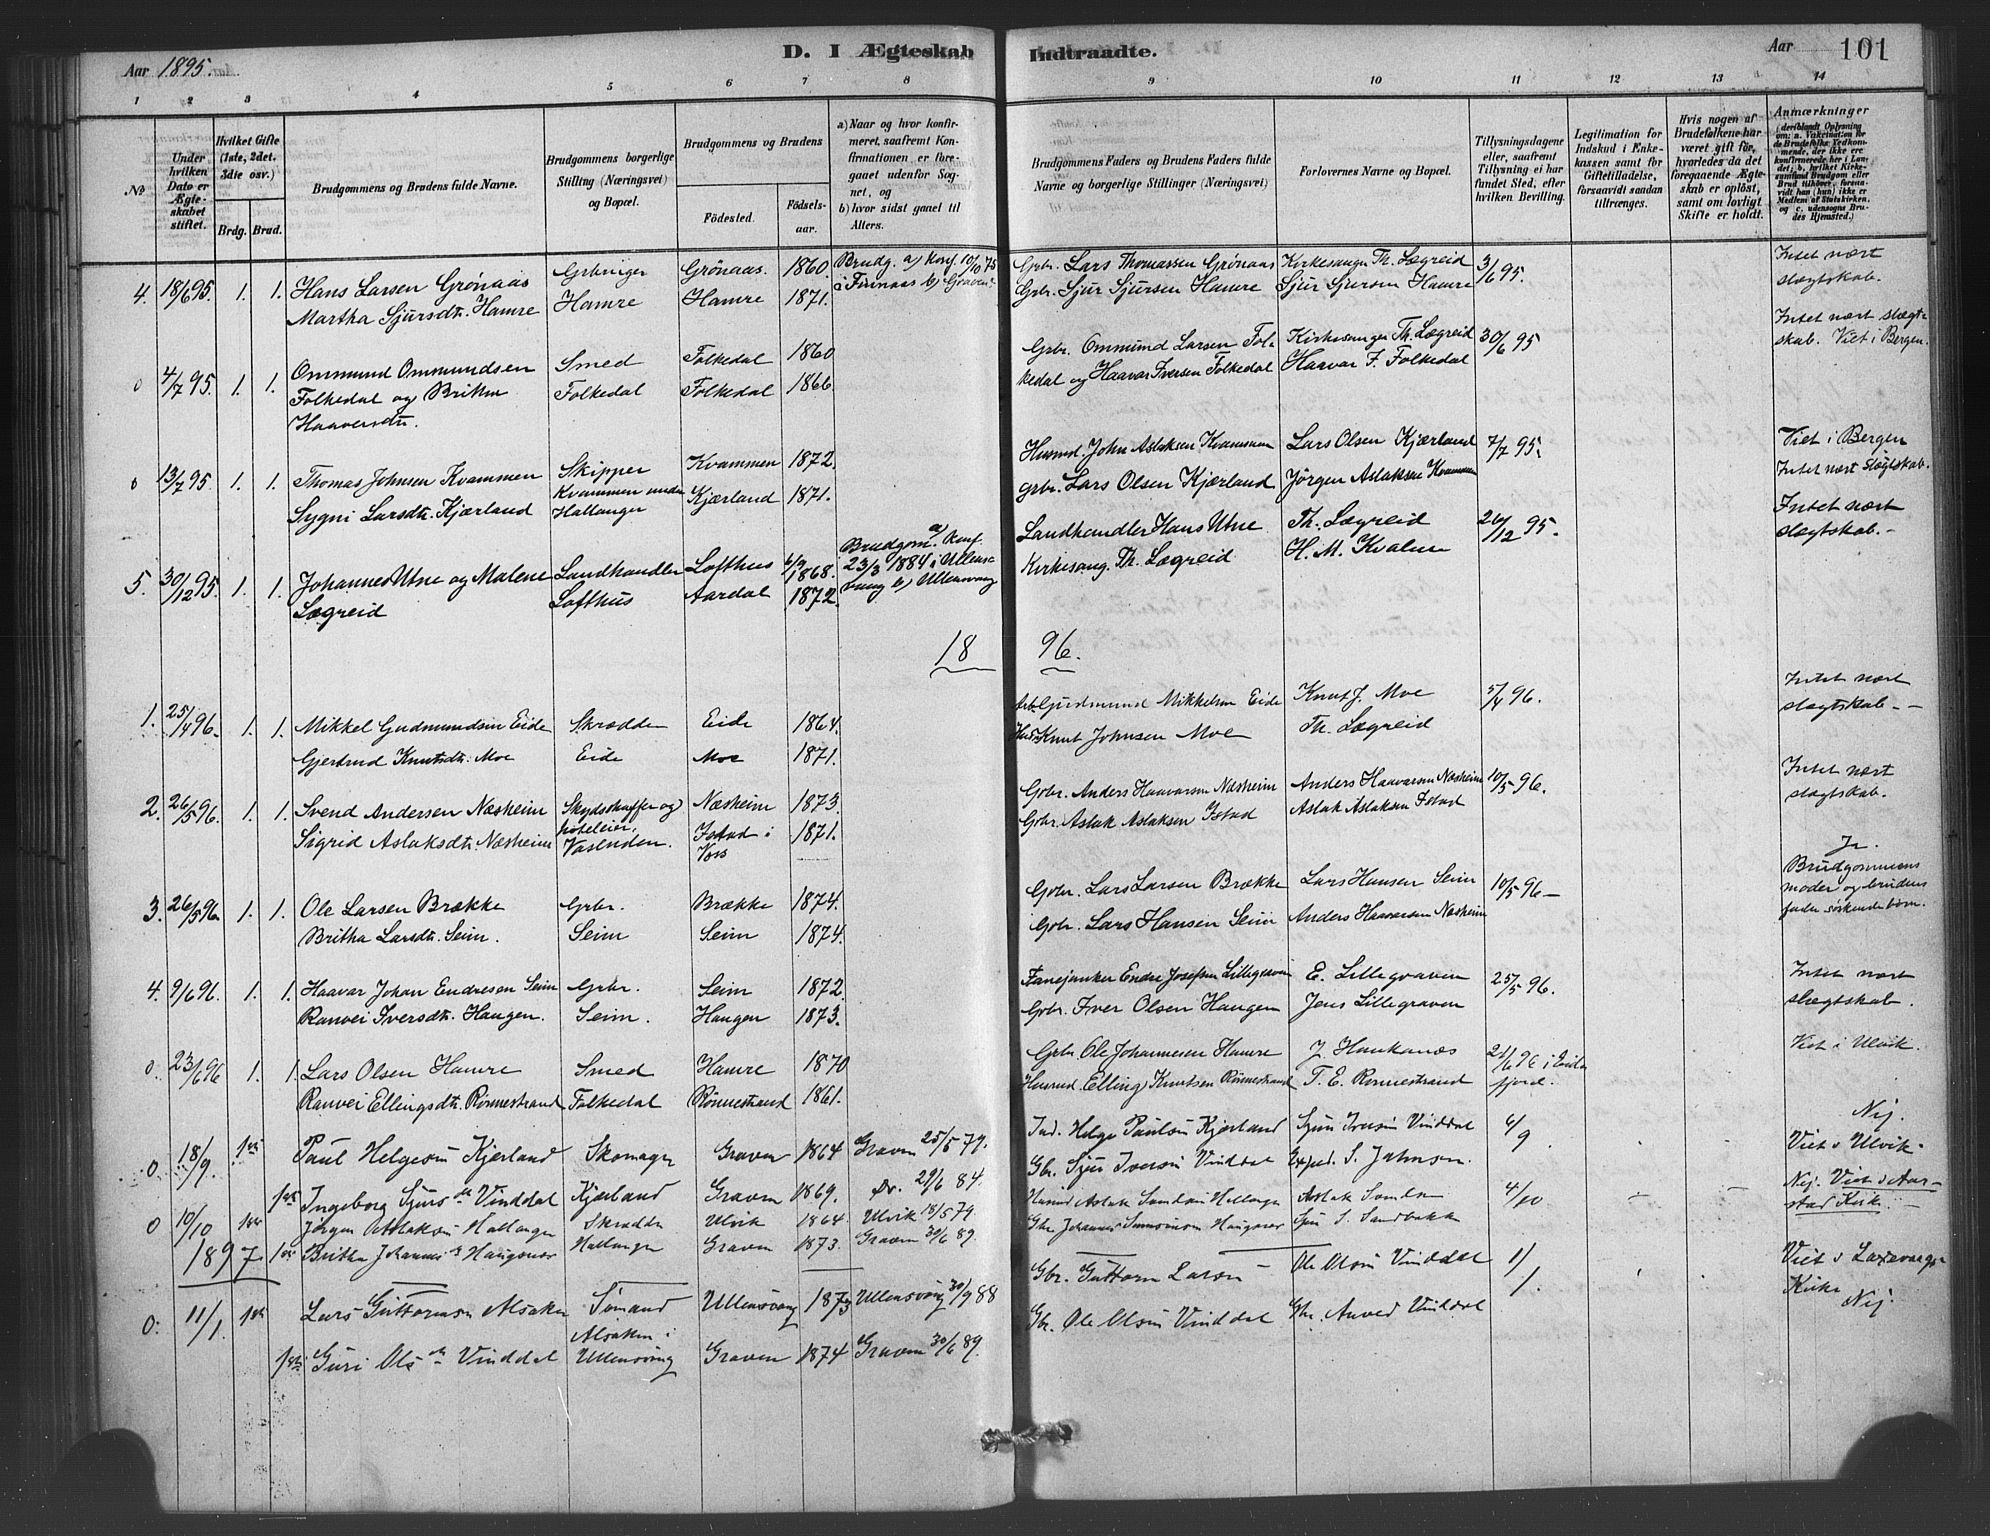 Aar 1895.
D. I Ægteskab Indtraadte.
Aar 101
1 2 3 4 5 6 7 8 9 10 11 12 13 14
№
Under hvilken Dato er Ægteskabet stiftet.
Hvilket Gifte (1ste, 2det, 3die osv.)
Brdg. Brud.
Brudgommens og Brudens fulde Navne.
Brudgommens borgerlige Stilling (Næringsvei) og Bopæl.
Brudgommens og Brudens
Fødested. Fødselsaar.
a) Naar og hvor konfirmeret, saafremt Konfirmationen er foregaaet udenfor Sognet, og
b) hvor sidst gaaet til Alters.
Brudgommens Faders og Brudens Faders fulde Navne og borgerlige Stillinger (Næringsvei)
Forlovernes Navne og Bopæl.
Tillysningsdagene eller, saafremt Tillysning ei har fundet Sted, efter hvilken Bevilling.
Legitimation for Indskud i Enkekassen samt for Giftetilladelse, forsaavidt saadan tiltrænges.
Hvis nogen af Brudefolkene har været gift før, hvorledes da det foregaaende Ægteskab er opløst, samt om lovligt Skifte er holdt.
Anmærkninger
4. 18/6 95. 1. 1. Hans Larsen Grønaas Grbruger Grønaas. 1860. Brudg. a) konf. 10/10 75 Grbr. Lars Thomassen Grønaas Kirkesanger Th. Lægreid 3/6 95. Intet nært
Martha Sjursdtr. Hamre Hamre Hamre 1871. i Finnaas b) Graven. Grbr. Sjur Sjursen Hamre Sjur Sjursen Hamre slægtskab.
0 4/7 95. 1. 1. Ommund Ommundsen Smed Folkedal 1860 Grbr. Ommund Larsen Fol- Kirkesanger Th. Lægreid 30/6 95 Intet nært slægt-
Folkedal og Britha Folkedal Folkedal 1866 kedal og Haavar Iversen Folkedal Haavar F. Folkedal skab. Viet i Bergen.
Haaversdtr.
0 13/7 95. 1. 1. Thomas Johnsen Kvammen Skipper Kvammen 1872. Husmd. John Aslaksen Kvammen Lars Olsen Kjærland 7/7 95. Viet i Bergen
Sygni Larsdtr. Kjærland Kvammen under Hallanger Kjærland 1871. grbr. Lars Olsen Kjærland Jørgen Aslaksen Kvammen Intet nært slægtskab.
5. 30/12 95. 1. 1. Johannes Utne og Malene Landhandler Lofthus 1868. Brudgom. a) konf. 23/3 1884 i Ullens- Landhandler Hans Utne Th. Lægreid 26/12 95. Intet nært
Lægreid Lofthus Aardal 1872. vang b) Ullensvang Kirkesang. Th. Lægreid H. M. Kvalen slægtskab.
18 96.
1. 25/4 96. 1. 1. Mikkel Gudmundsen Eide Skrædder Eide 1864. Gudmund Mikkelsen Eide Knut J. Moe 5/4 96. Intet nært
Gjertrud Knutsdtr. Moe Eide Moe 1871. Knut Johnsen Moe Th. Lægreid slægtskab.
2. 26/5 96. 1. 1. Svend Andersen Næsheim Skydsskaffer og Næsheim 1873. Gbr. Anders Haavarsen Næsheim Anders Haavarsen Næsheim 10/5 96. Intet nært
Sigrid Aslaksdtr. Næsheim hoteleier, Vasenden. Istad i Voss 1871. Gbr. Aslak Aslaksen Istad Aslak Aslaksen Istad slægtskab.
3. 26/5 96. 1. 1. Ole Larsen Brække Grbr. Brække 1874. Gbr. Lars Larsen Brække Lars Hansen Seim 10/5 96. Ja. Brudgommens
Britha Larsdtr. Seim. Seim Seim 1874. Gbr. Lars Hansen Seim Anders Haavarsen Næsheim moder og brudens fader søskendebørn.
4. 9/6 96. 1. 1. Haavar Johan Endresen Seim Grbr. Seim 1872. Fanejunker Endre Josefsen Lillegraven E. Lillegraven 25/5 96. Intet nært
Ranvei Iversdtr. Haugen. Seim. Haugen 1873. Gbr. Iver Olsen Haugen Jens Lillegraven slægtskab.
0. 23/6 96 1. 1. Lars Olsen Hamre Smed Hamre 1870 Grbr Ole Johannesen Hamre J. Haukanæs 21/6 96 i Eid- Viet i Ulvik.
Ranvei Ellingsdtr. Rønnestrand Folkedal Rønnestrand 1861. Husmd. Elling Knutsen Rønnestrand T. E. Rønnestrand fjord.
0 18/9. 1ste Paul Helgesen Kjærland Skomager Graven 1864 Graven 25/5 79. Ind. Helge Paulsen Kjærland Sjur Iversen Vinddal 6/9. Nej.
1ste Ingeborg Sjursdtr Vinddal Kjærland Graven 1869. Do. 29/6 84. Gbr. Sjur Iversen Vinddal Exped. S. Johnsen. Viet i Ulvik.
0 10/10 1ste Jørgen Aslaksen Hallanger Skrædder Ulvik 1864. Ulvik 18/5 79. Husmd Aslak Hallanger Aslak 4/10 Nej. Viet i Aarstad Kirke.
1ste Britha Johannesdtr Haugsnes Hallanger Graven 1873. Graven 30/6 89. Gbr Johannes Haugsnes Sjur S. Sandbakk
1897
0. 11/1. 1ste Lars Guttormsen Alsaker Sømand Ullensvang 1873 Ullensvang 30/9 88 Gbr. Guttorm Larsen Ole Olsen Vinddal 1/1. Viet i Laxevaags Kirke
Alsaker i
1ste Guri Olsdtr Vinddal Ullensvang Graven 1874 Graven 30/6 89. Gbr. Ole Olsen Vinddal Gbr. Vinddal Nej.